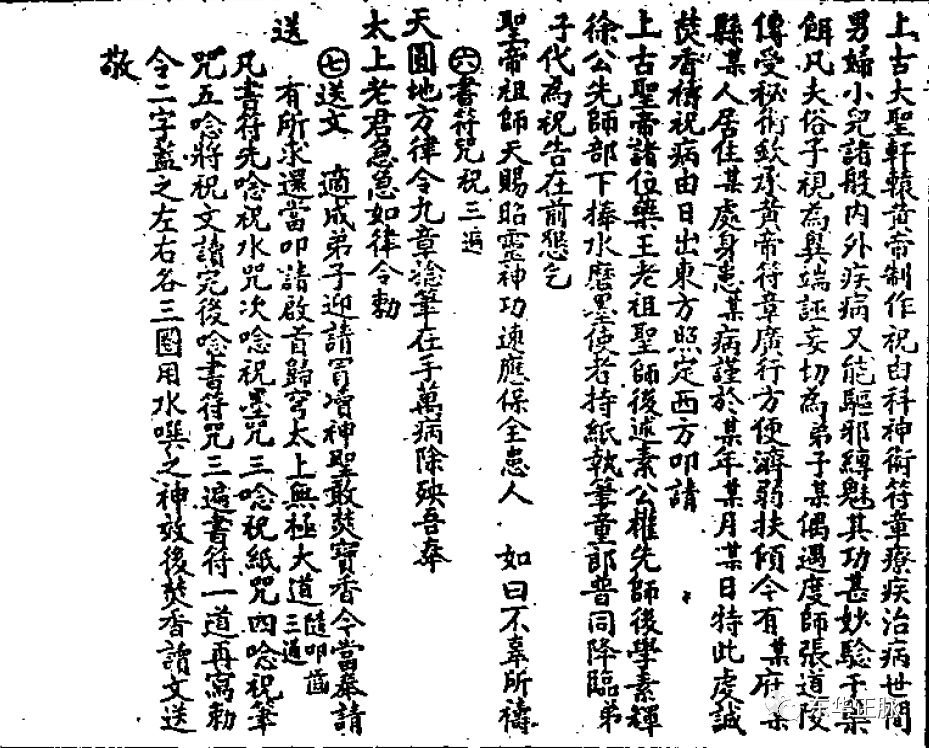 上古大聖軒轅黃帝制作祝由科神術符章療疾治病世間
男婦小兒諸般內外疾病又能驅邪縛魅其功甚妙驗于某
餌凡夫俗子視為異端誣妄切為弟子某偶遇度師張道陵
傳受秘術欽承黃帝符章廣行方便濟弱扶傾今有某府某
縣某人居住某處身患某病謹於某年某月某日特此虔誠
焚香禱祝病由日出東方照定西方叩請
上古聖帝諸位藥王老祖聖師後述素公權先師後學素輝
徐公先師部下捧水磨墨使者持紙執筆童郎普同降臨弟
子代為祝告在前懇乞
聖帝祖師天賜昭靈神功速應保全患人 如曰不辜所禱
㊅書符咒祝三遍
天圓地方律令九章捻筆在手萬病除殃吾奉
太上老君急急如律令勅
㊆送文 適成弟子迎請冒瀆神聖敢焚寶香今當奉請
送
有所求還當叩請啟首歸穹太上無極大道隨叩首三遍
凡書符先唸祝水咒次唸祝墨咒三唸祝紙咒四唸祝筆
咒五唸將祝文讀完後唸書符咒三遍書符一道再寫勅
令二字蓋之左右各三圈用水噀之神效後焚香讀文送
敬
东华正脉